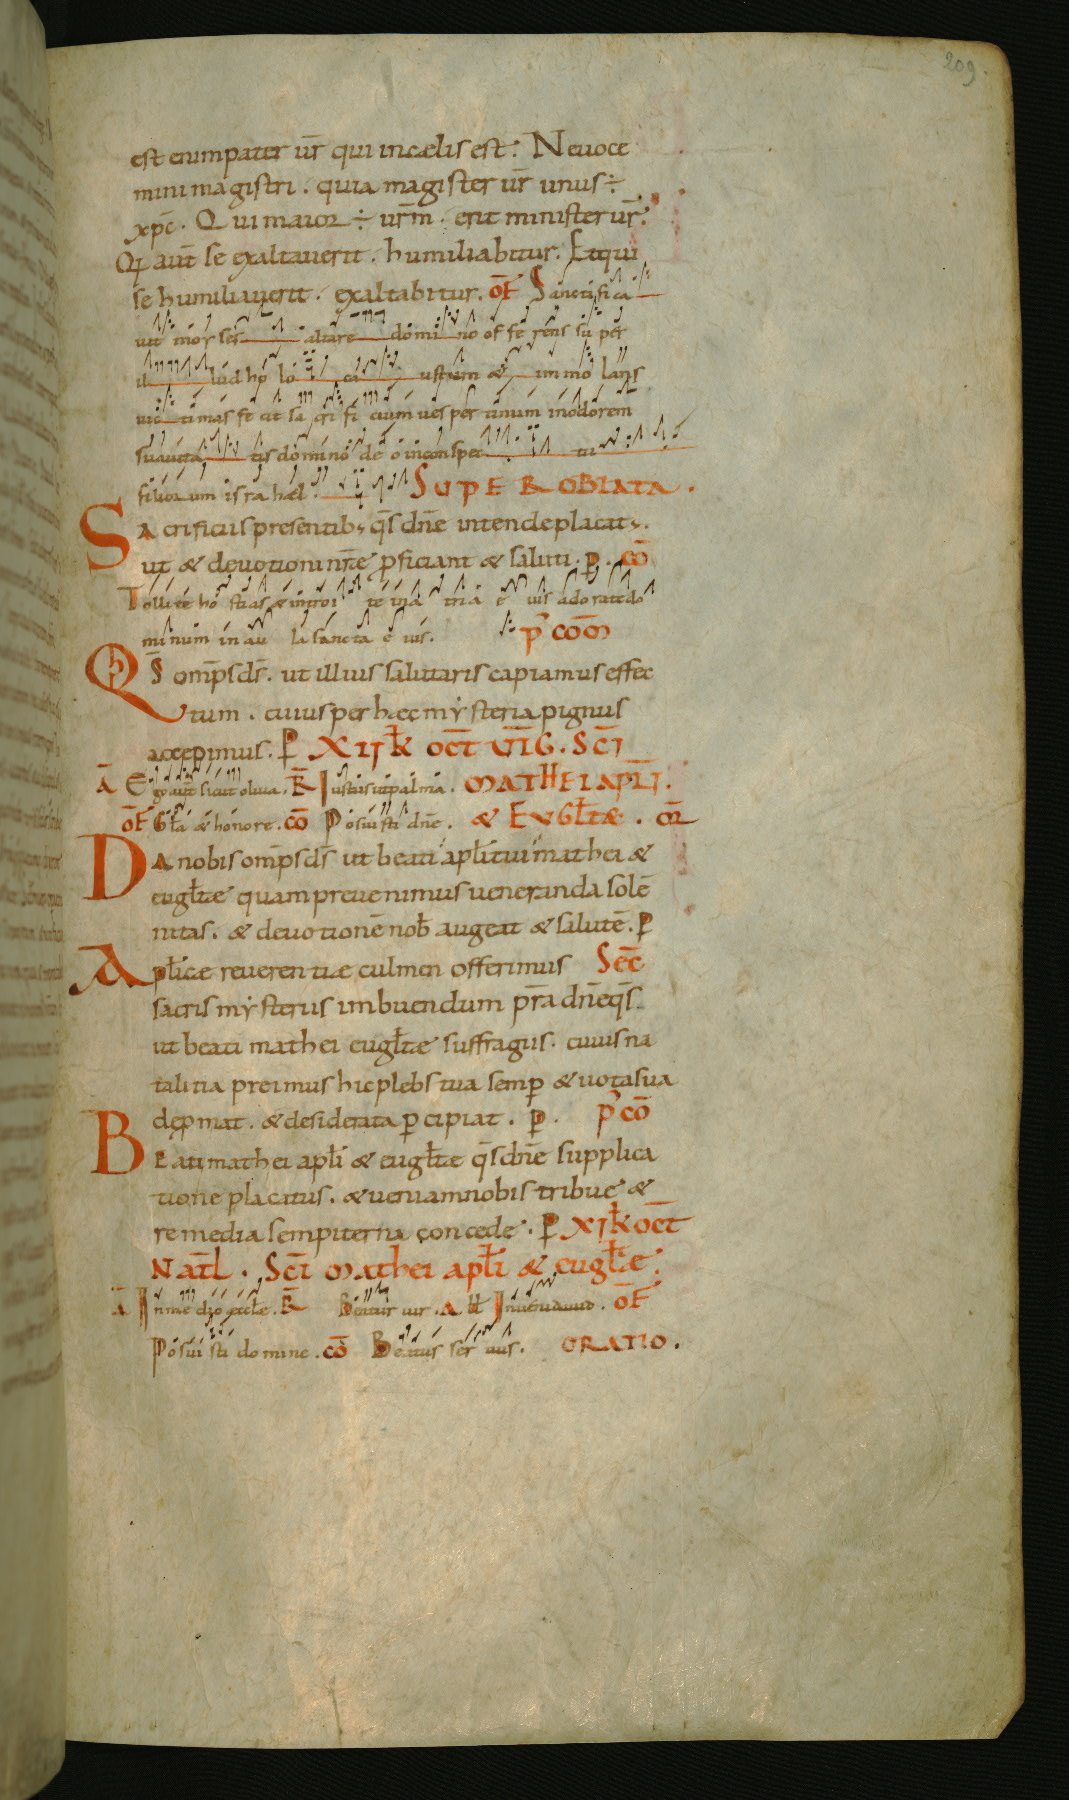 209
est enim pater ur̄ qui incælis est. Neuoce
mini magistri. quia magister ur̄ unus ÷
xp̄c. Qui maior ÷ urm̄. erit minister ur̄.
Qi aut̄ se exaltauerit. humiliabitur. Etqui
se humiliauerit. exaltabitur. OF̄ Sanctifica
uit moyses altare domino offerens super
illud holocaustum & immolans
uictimas fecit sacrificium uespertinum inodorem
suauitatis domino deo inconspectu
filiorum israhel. SUPER OBLATA.
SAcrificiis presentib; q̄s dn̄e intende placat;.
ut & deuotioni nr̄e ꝑficiant & saluti. P. CŌ
Tollite hostias & introite inatria eius adorate do
minum in aula sancta eius. P̄ COM̄
Qs̄ omp̄s ds̄. ut illius salutaris capiamus effec
tum. cuius per hæc mysteria pignus
accepimus. P XII K̄ OCT̄ VIḠ. SC̄I
Ā Ego aut̄ sicut oliua. R̄ Iustus utpalma. MATHEI APLI.
OF̄ Gl̄a & honore. CŌ Posuisti dn̄e. & EVGL̄TÆ. OR̄
DA nobis omp̄s ds̄ ut beati apl̄i tui mathei &
eugl̄tæ quam preuenimus ueneranda solē
nitas. & deuotionē nob̄ augeat & salutē. P
Apl̄icæ reuerentiæ culmen offerimus SEC̄
sacris mysteriis imbuendum pr̄a dn̄e q̄s
ut beati mathei eugl̄tæ suffragiis. cuius na
talitia preimus hic plebs tua semꝑ & uota sua
depmat. & desiderata ꝑcipiat. P. P̄ CŌ
BEati mathei apl̄i & eugl̄tæ q̄s dn̄e supplica
tione placatus. & ueniam nobis tribue &
remedia sempiterna concede. P XI K̄ OCT̄
NATL̄. SC̄I Mathei apl̄i & eugl̄tæ.
Ā Inmedio æccl̄e. R̄ Beatus uir. A ll Inueni dauid. OF̄
Posuisti domine. CŌ Beatus seruus. ORATIO.